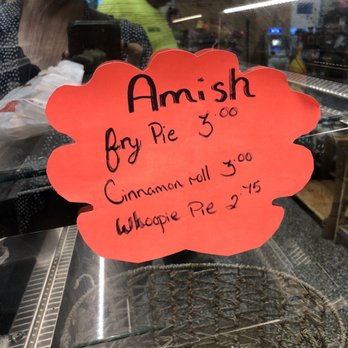 Amish
fry Pie 3.00
Cinnamon roll 3.00
Whoopie Pie 2.75